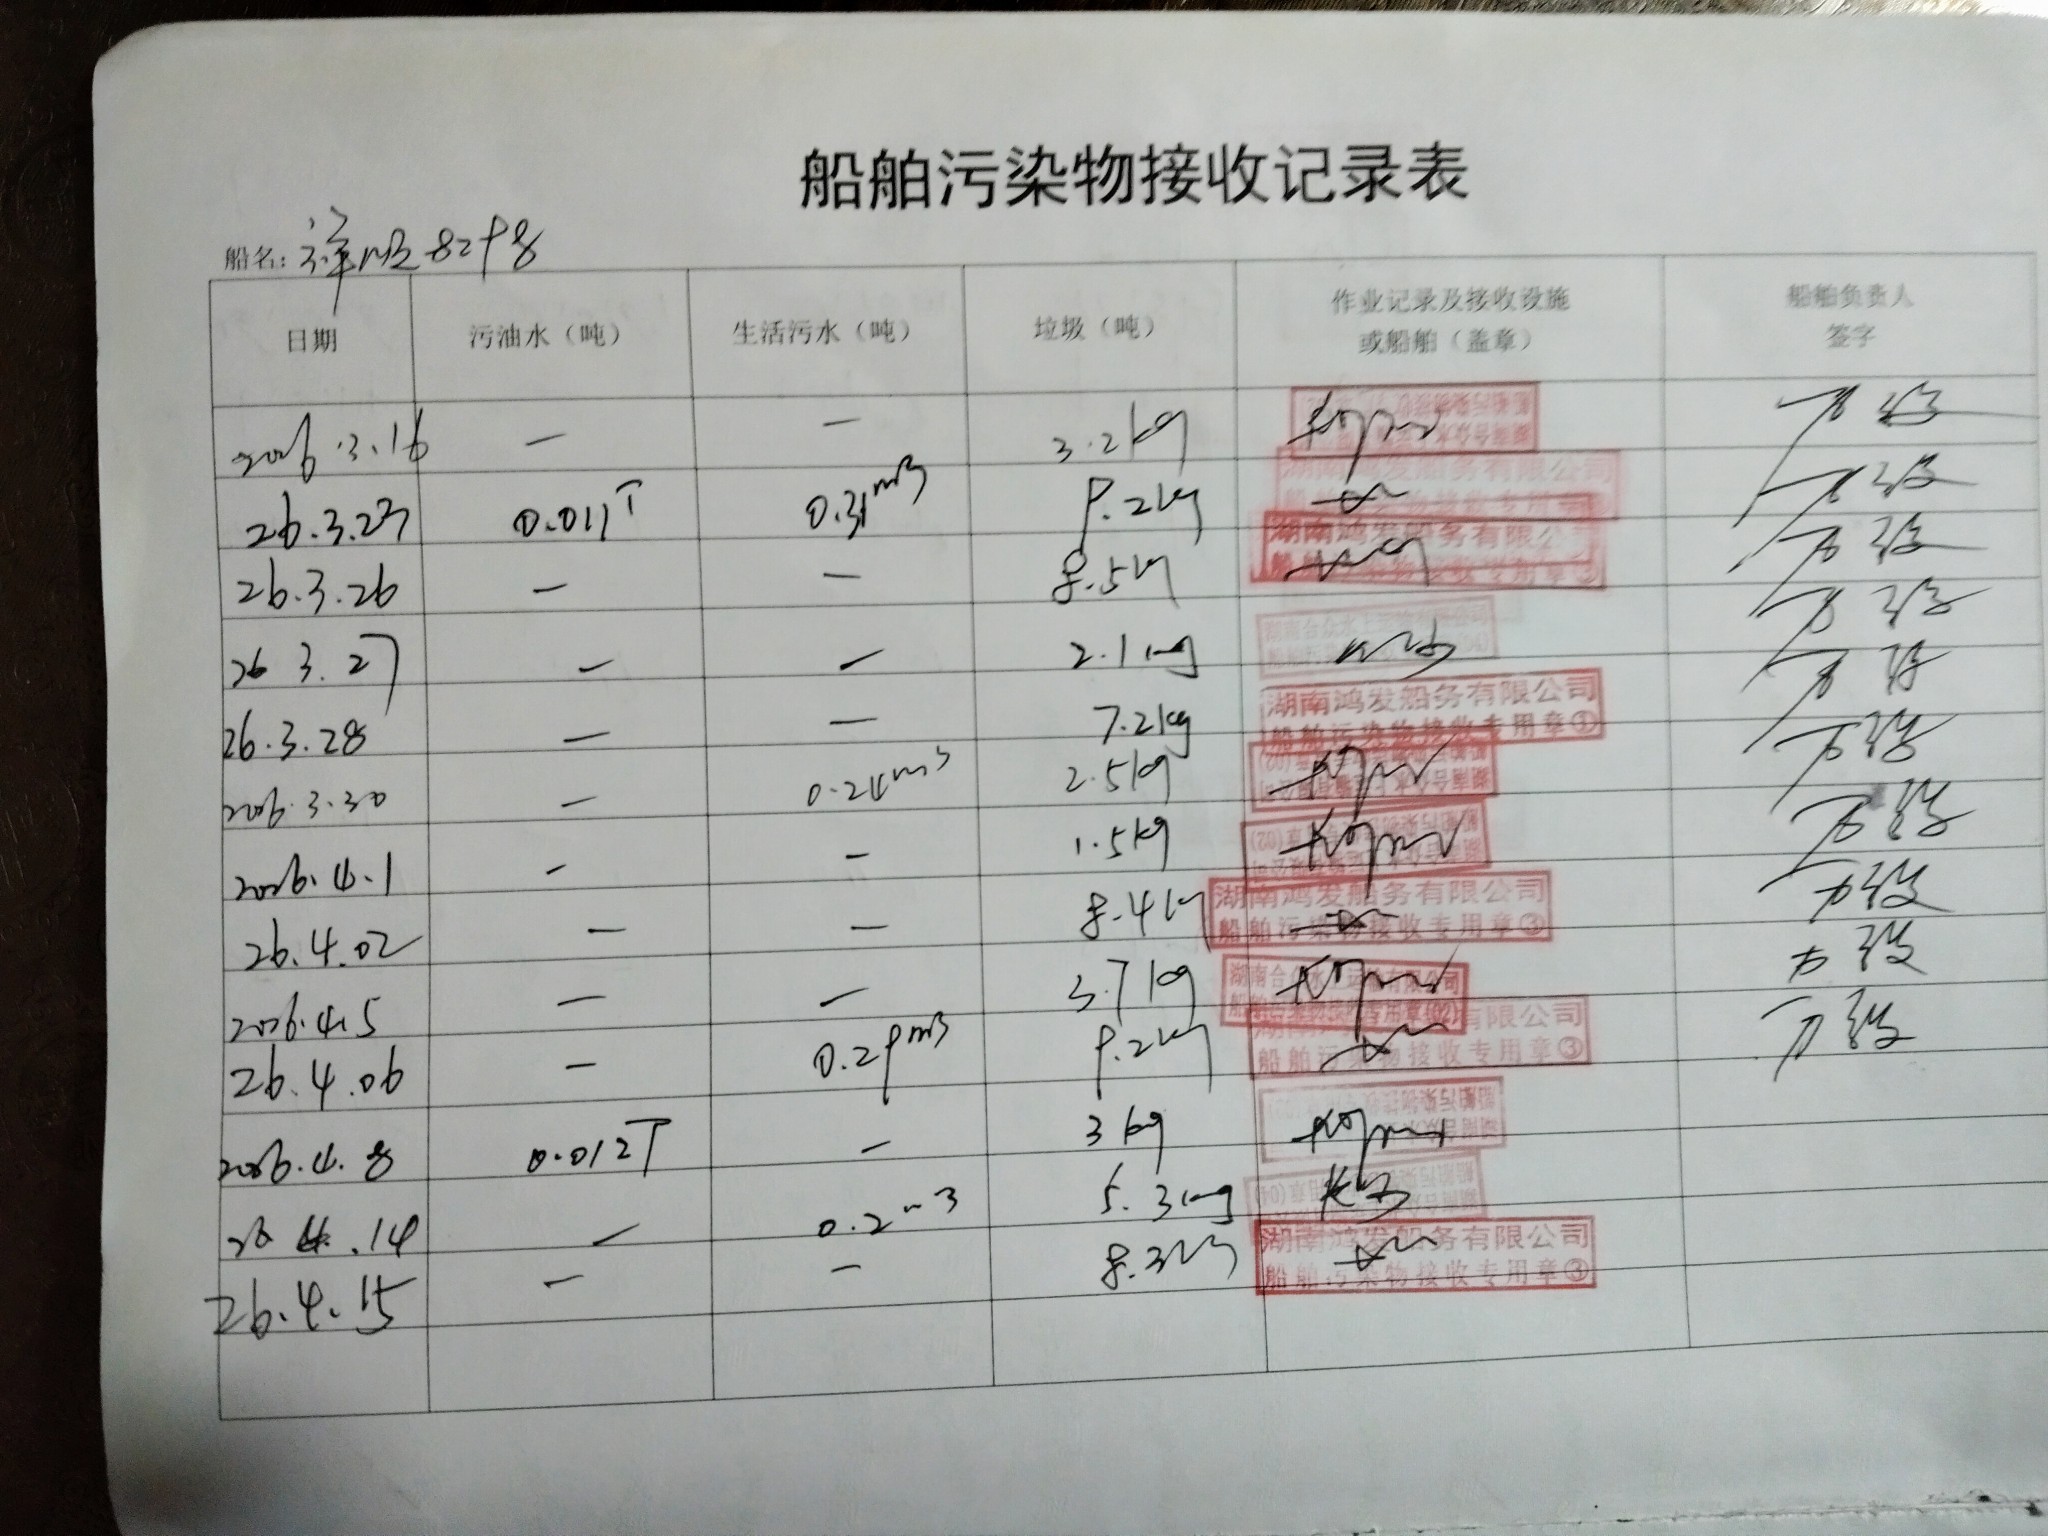 船舶污染物接收记录表
船名: 祥顺8298
日期 污油水（吨） 生活污水（吨） 垃圾（吨） 作业记录及接收设施或船舶（盖章） 船舶负责人签字
2026.3.16 — — 3.2kg
26.3.23 0.011T 0.31m3 9.2kg 湖南鸿发船务有限公司
26.3.26 — — 8.5kg 湖南鸿发船务有限公司
26 3.27 — — 2.1kg
26.3.28 — — 7.2kg 湖南鸿发船务有限公司 船舶污染物接收专用章①
2026.3.30 — 0.24m3 2.5kg
2026.4.1 — — 1.5kg
26.4.02 — — 8.4kg 湖南鸿发船务有限公司 船舶污染物接收专用章③
2026.4.5 — — 3.7kg 湖南合众水上运输有限公司 船舶污染物接收专用章(02)
26.4.06 — 0.29m3 9.2kg 船舶污染物接收专用章③
2026.4.8 0.012T — 3kg
26 4.14 — 0.2m3 5.3kg
26.4.15 — — 8.3kg 湖南鸿发船务有限公司 船舶污染物接收专用章③